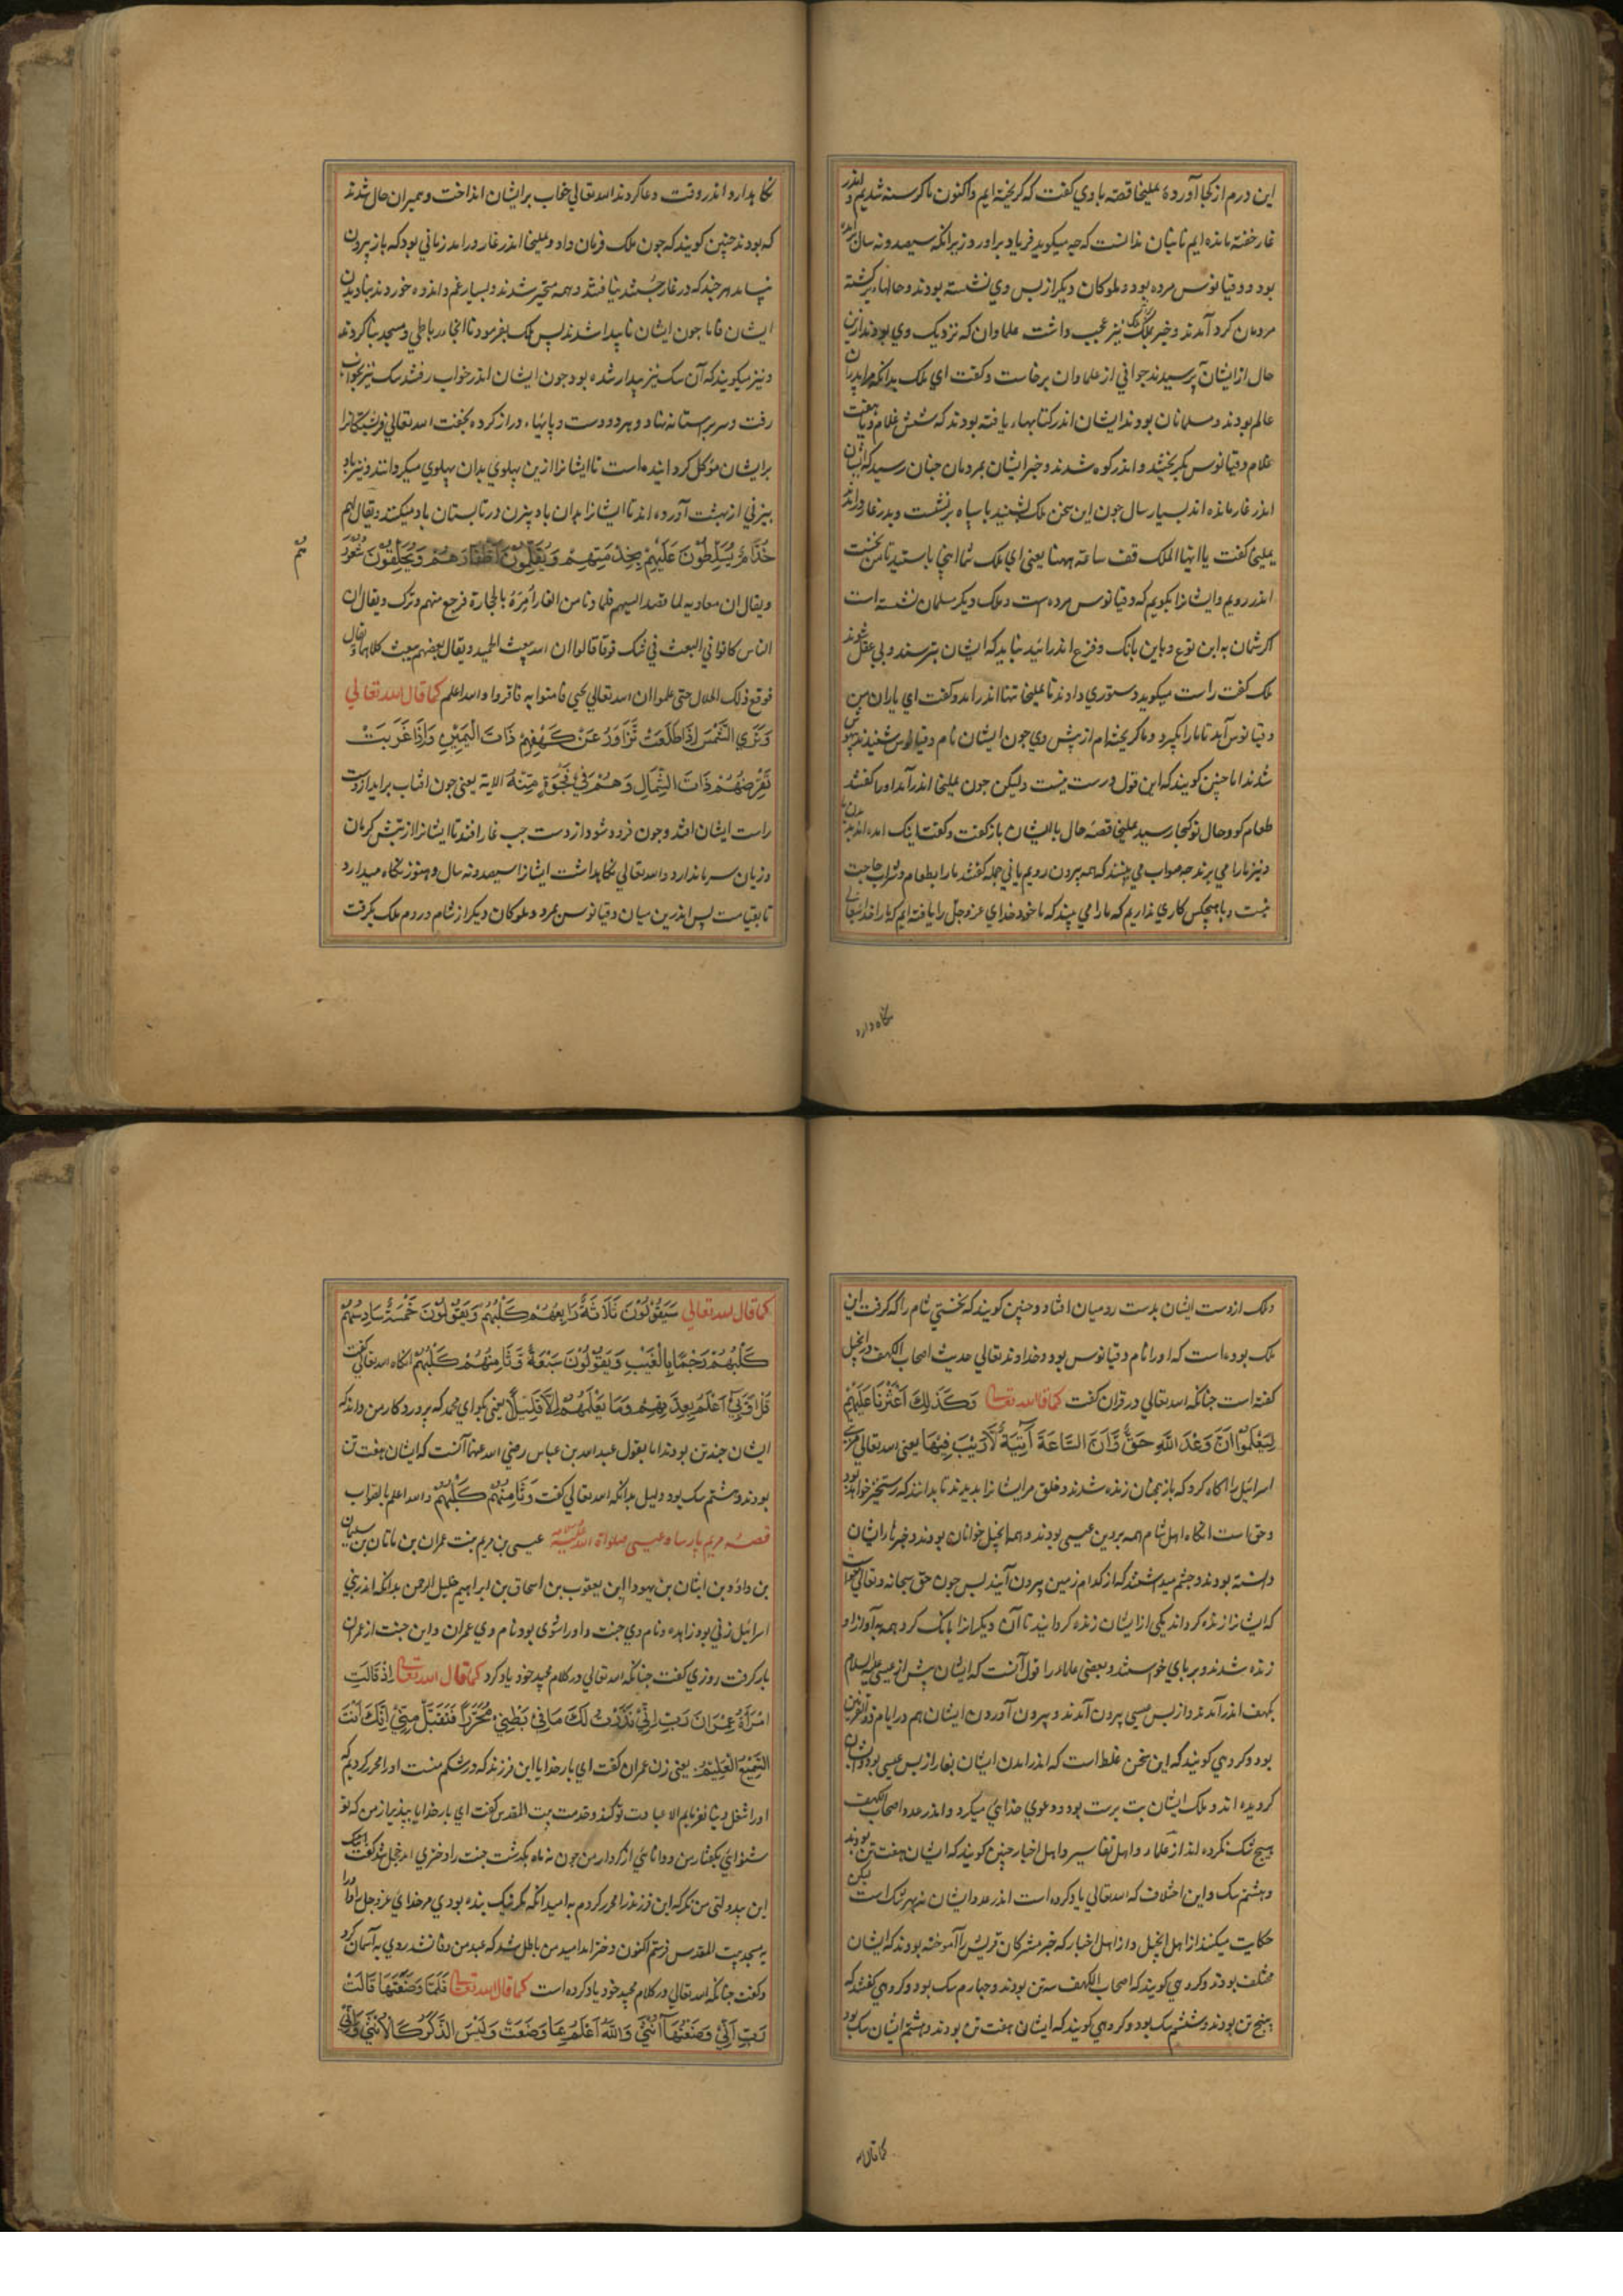 این درم از کجا آورده یملیخا قصه با وي کفت که کریخته ایم و اکنون ما کرسنه شدیم و اندر
غار خفته مانده ایم تا بشان ندانست که چه میکوید فریاد براورد زیرانکه سیصد و نه سال
بود و دقیانوس مرده بود و ملوکان دیکر از پس وي نشسته بودند و حالها برکشته
مردمان کرد آمدند و خبر بملک نیز عجب داشت علماوان که نزدیک وي بودند ازین
حال از ایشان پرسیدند جواني از علماوان برخاست و کفت اي ملک بدانکه پدران
عالم بودند و مسلمانان بودند ایشان اندر کتابهاء یافته بودند که شش غلام و یا هفت
غلام دقیانوس بکریختند و اندر کوه شدند و خبر ایشان بمردمان چنان رسید که ایشان
اندر غار مانده اند بسیار سال جون این سخن ملک بشنید با سپاه برنشست و بدر غار
یملیخا کفت یا ایها الملک قف ساعة ههنا یعنی اي ملک شما اینجا باستید تا من نخست
اندر رویم و ایشانرا بکویم که دقیانوس مرده است و ملک دیکر مسلمان نشسته است
اکر شمان به این نوع و باین بانک و فزع اندر ائید نباید که ایشان بترسند و بي عقل شوند
ملک کفت راست میکوید دستوري دادند تا یملیخا تنها اندر امد و کفت اي یاران من
دقیانوس آمد تا مارا بکیرد و ما کریخته ام از پیش وي جون ایشان نام دقیانوس شنیدند بیهوش
شدند اما چنین کویند که این قول درست نیست ولیکن جون یملیخا اندر آمد اورا کفتند
طعام کو و حال تو کجا رسید یملیخا قصه حال با ایشان باز کفت و کفت اینک امده اند
و نیز مارا مي برند جه صواب مي بینند که همه بیرون رویم یا ني جمله کفتند مارا بطعام و شراب حاجت
نیست و با هیچکس کاري نداریم که مارا مي بیند که ما خود خداي عز و جل را یافته ایم که مارا
نکاه دارد
نکاهدارد اندر وقت دعا کردند الله تعالي خواب بر ایشان انداخت و بمیران حال شدند
که بودند چنین کویند که جون ملک فرمان داد و یملیخا اندر غار در امد زماني بود که باز بیرون
نیامد هر چند که در غار جستند نیافتند و همه متحیر شدند و بسیار غم و اندوه خوردند بنادیدن
ایشان فاما جون ایشان ناپیدا شدند پس ملک بفرمود تا انجا رباطي و مسجد بنا کردند
و نیز میکویند که آن سک نیز بیدار شده بود جون ایشان اندر خواب رفتند سک نیز بخواب
رفت و سر بر استانه نهاد و هر دو دست و پایهاء دراز کرده بخفت الله تعالي فرشتکانرا
بر ایشان مؤکل کردانیده است تا ایشانرا ازین پهلوي بدان پهلوي میکردانند و نیز باد
بیزني از بهشت آورده اند تا ایشانرا بدان باد بیزن در تابستان باد میکنند و یقال لهم
خُدَّامٌ یُسَلَّطُونَ عَلَیْهِمْ بِخِدْمَتِهِمْ وَیُقَلِّمُونَ اَظْفَارَهُمْ وَیُحَلِّقُونَ شُعُورَ
هُمْ
و یقال ان معاویه لما قصد الیهم فلما دنا من الغار اُمِرَهُ بالحجارة فرجع منهم و ترک و یقال ان
الناس کانوا في البعث في شک فرقا قالوا ان الله یبعث الجسد و یقال بعضهم یبعث کلاهما قال
فوقع ذلک الحال حتی علموا ان الله تعالي یحیي فامنوا به فاقروا و الله اعلم کما قال الله تعالي
وَتَرَي الشَّمْسَ اِذَا طَلَعَتْ تَزَاوَرُ عَنْ کَهْفِهِمْ ذَاتَ الْیَمِیْنِ وَاِذَا غَرَبَتْ
تَقْرِضُهُمْ ذَاتَ الشِّمَالِ وَهُمْ فِيْ فَجْوَةٍ مِنْهُ الایة یعنی جون افتاب براید از دست
راست ایشان افتد و جون فرو شود از دست چپ غار افتد تا ایشانرا از تبش کرمان
و زیان سرما ندارد و الله تعالي نکاهداشت ایشانرا سیصد و نه سال و هنوز نکاه میدارد
تا بقیامت پس اندرین میان دقیانوس بمرد و ملوکان دیکر از شام و روم ملک بکرفت
و ملک از دست ایشان بدست رومیان افتاد و چنین کویند که نخستي شام را که کرفت این
ملک بوده است که اورا نام دقیانوس بود و خداوند تعالي حدیث اصحاب الکهف در انجیل
کفته است چنانکه الله تعالي در قران کفت کما قال الله تعالي وَکَذَلِكَ اَعْثَرْنَا عَلَیْهِمْ
لِیَعْلَمُوْا اَنَّ وَعْدَ اللّٰهِ حَقٌّ وَّاَنَّ السَّاعَةَ آتِیَةٌ لَّارَیْبَ فِیْهَا یعنی الله تعالي مر بني
اسرائیل را اکاه کرد که باز بمثلشان زنده شدند و خلق مر ایشانرا بدیدند تا بدانند که رستخیز خواهد بود
و حق است انکاه اهل شام همه بر دین عیسی بودند و همه انجیل خوانان بودند و خبرها از ایشان
داشته بودند و چشم میداشتند که از کدام زمین بیرون آیند پس جون حق سبحانه و تعالي خواست
که ایشانرا زنده کرداند یکي از ایشان زنده کردانید تا آن دیکرانرا بانک کرد همه به آواز او
زنده شدند و بر پاي خواستند و بعضی علماء را قول آنست که ایشان پیش از عیسی علیه السلام
بکهف اندر آمدند و از پس عیسی بیرون آمدند و بیرون آوردن ایشان هم در ایام ذو القرنین
بود و کروهي کویند که این سخن غلط است که اندر امدن ایشان بغار از پس عیسی بود
کرویده اند و ملک ایشان بت پرست بود و دعوي خدایي میکرد و اندر عدد اصحاب الکهف
هیچ شک نکرده اند از علماء و اهل تفاسیر و اهل اخبار چنین کویند که ایشان هفت تن بودند
و هشتم سک و این اختلاف که الله تعالي یاد کرده است اندر عدد ایشان نه بهر شک است لیکن
حکایت میکند از اهل انجیل و از اهل اخبار که خبر مشرکان قریش را آموخته بودند که ایشان
مختلف بودند و کروهي کویند که اصحاب الکهف سه تن بودند و چهارم سک بود و کروهي کفتند که
پنج تن بودند و ششم سک بود و کروهي کویند که ایشان هفت تن بودند و هشتم ایشان سک بود
کما قال الله
کما قال الله تعالي سَیَقُوْلُوْنَ ثَلَاثَةٌ رَابِعُهُمْ کَلْبُهُمْ وَیَقُوْلُوْنَ خَمْسَةٌ سَادِسُهُمْ
کَلْبُهُمْ رَجْمًا بِالْغَیْبِ وَیَقُوْلُوْنَ سَبْعَةٌ وَّثَامِنُهُمْ کَلْبُهُمْ انکاه الله تعالي کفت
قُلْ رَبِّيْ اَعْلَمُ بِعِدَّتِهِمْ وَمَا یَعْلَمُهُمْ اِلَّا قَلِیْلٌ یعنی بکو اي محمد که پروردکار من داند که
ایشان چند تن بودند اما بقول عبد الله بن عباس رضي الله عنهما آنست که ایشان هفت تن
بودند و هشتم سک بود دلیل بدانکه الله تعالي کفت وَثَامِنُهُمْ کَلْبُهُمْ و الله اعلم بالصواب
قصهٔ مریم پارسا و عیسی صلواة الله علیه عیسی بن مریم بنت عمران بن ماتان بن سلیمان
بن داؤد بن ایشان بن یهودا ابن یعقوب بن اسحاق بن ابراهیم خلیل الرحمن بدانکه اندر بني
اسرائیل زني بود زاهده و نام وي حنت و اورا شوي بود نام وي عمران و این حنت از عمران
بار کرفت روزي کفت چنانکه الله تعالي در کلام مجید خود یاد کرد کما قال الله تعالي اِذْ قَالَتِ
امْرَاَةُ عِمْرَانَ رَبِّ اِنِّيْ نَذَرْتُ لَكَ مَا فِيْ بَطْنِيْ مُحَرَّرًا فَتَقَبَّلْ مِنِّيْ اِنَّكَ اَنْتَ
السَّمِیْعُ الْعَلِیْمُ یعنی زن عمران کفت اي بار خدایا این فرزند که در شکم منست اورا محرر کردم که
اورا شغل دنیا نفرمایم الا عبادت تو کند و خدمت بیت المقدس کفت اي بار خدایا بپذیر از من که تو
شنوائي بکفتار من و دانائي از کردار من جون نه ماه بکذشت حنت را دختري امد خجل شد کفت
این بیدولتی من نکر که این فرزند را محرر کردم به امید انکه مکر نیک بنده بودي مر خداي عز و جل را
به مسجد بیت المقدس فرستم اکنون دختر امد امید من باطل شد که عهد من وفا نشد روي به آسمان کرد
و کفت چنانکه الله تعالي در کلام مجید خود یاد کرده است کما قال الله تعالي فَلَمَّا وَضَعَتْهَا قَالَتْ
رَبِّ اِنِّيْ وَضَعْتُهَا اُنْثَی وَاللّٰهُ اَعْلَمُ بِمَا وَضَعَتْ وَلَیْسَ الذَّکَرُ کَالْاُنْثَی وَاِنِّيْ